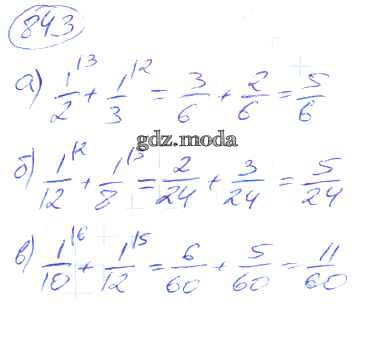 843
а) 1/2 \3 + 1/3 \2 = 3/6 + 2/6 = 5/6
gdz.moda
б) 1/12 \2 + 1/8 \3 = 2/24 + 3/24 = 5/24
в) 1/10 \6 + 1/12 \5 = 6/60 + 5/60 = 11/60